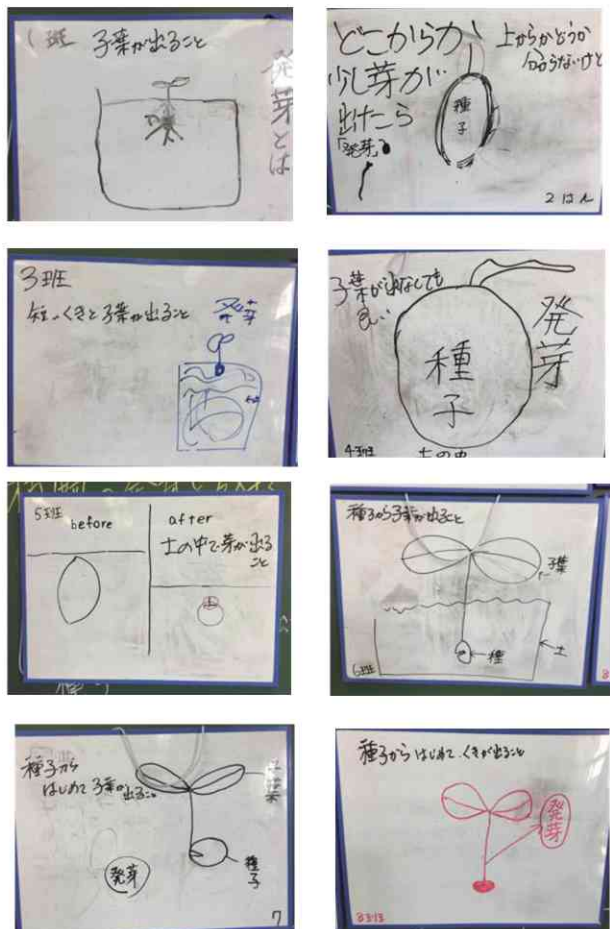 1班 子葉が出ること
発芽とは
どこからか
少し芽が
出たら
「発芽」
上からかどうか
分からないけど
種子
2はん
3班
短いくきと子葉が出ること
発芽
子葉が出なくても
良い
種子
発芽
4班
土の中
5班
before
after
土の中で芽が出る
こと
種子から子葉が出ること
子葉
種
土
6班
種子から
はじめて子葉が
出ること
子葉
種子
発芽
7
種子からはじめてくきが出ること
発芽
8班